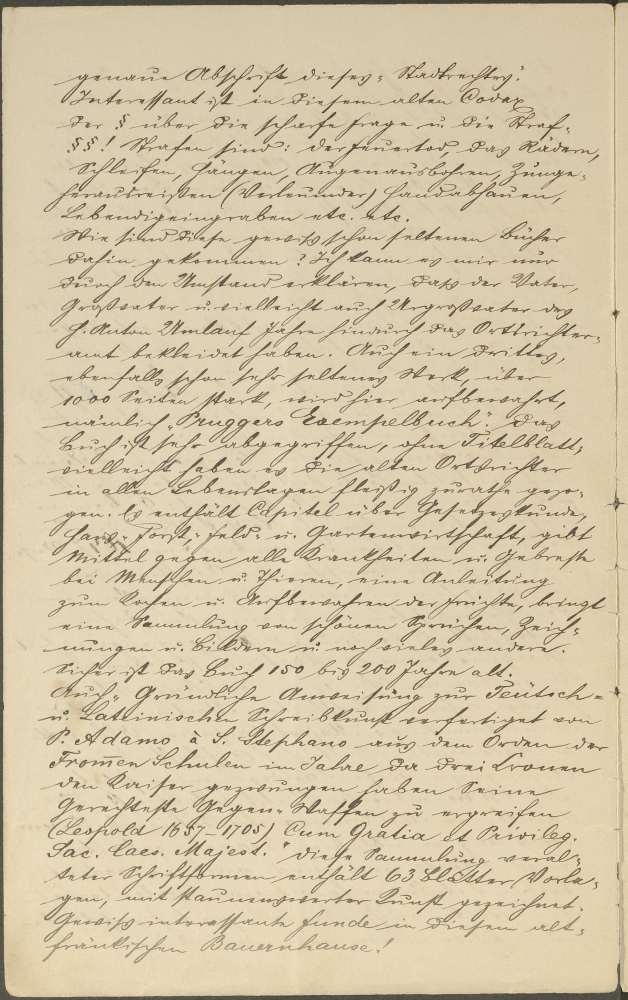 genaue Abschrift dieses „Stadtrechtes".
Interessant ist in diesem alten Codex
der § über die scharfe Frage u. die Straf-
§§! Strafen sind: der Feuertod, das Rädern,
Schleifen, Hangen, Augenausbohren, Zunge-
herausreißen (Verleumder) Handabhauen,
Lebendigeingraben etc. etc.
Wie sind diese gewiß schon seltenen Bücher
dahin gekommen? Ich kann es mir nur
durch den Umstand erklären, daß der Vater,
Großvater u. vielleicht auch Urgroßvater des
H. Anton Umlauf Jahre hindurch das Ortsrichter-
amt bekleidet haben. Auch ein drittes,
ebenfalls schon sehr seltenes Werk, über
1000 Seiten stark, wird hier aufbewahrt,
nämlich „Pruggers Exempelbuch". Das
Buch ist sehr abgegriffen, ohne Titelblatt,
vielleicht haben es die alten Ortsrichter
in allen Lebenslagen fleißig zurathe gezo-
gen. Es enthält Capitel über Gesetzeskunde,
Haus-, Forst-, Feld- u. Gartenwirtschaft, gibt
Mittel gegen alle Krankheiten u. Gebreste
bei Menschen u. Thieren, eine Anleitung
zum Kochen u. Aufbewahren der Früchte, bringt
eine Sammlung von schönen Sprüchen, Zeich-
nungen u. Bildern u. noch vieles andere.
Sicher ist das Buch 150 bis 200 Jahre alt.
Auch „Gründliche Anweisung zur Teütsch-
u. Lateinischen Schreibkunst verfertiget von
P. Adamo à S. Stephano aus dem Orden der
Fromen Schulen im Jahre da drei Cronen
den Kaiser gezwungen haben Seine
Gerechteste Gegen-Waffen zu ergreifen
(Leopold 1657-1705) Cum Gratia et Privileg.
Sac. Caes. Majest." Diese Sammlung veral-
teter Schriftformen enthält 63 Blätter Vorla-
gen, mit staunenswerter Kunst gezeichnet.
Gewiß interessante Funde in diesem alt-
fränkischen Bauernhause!